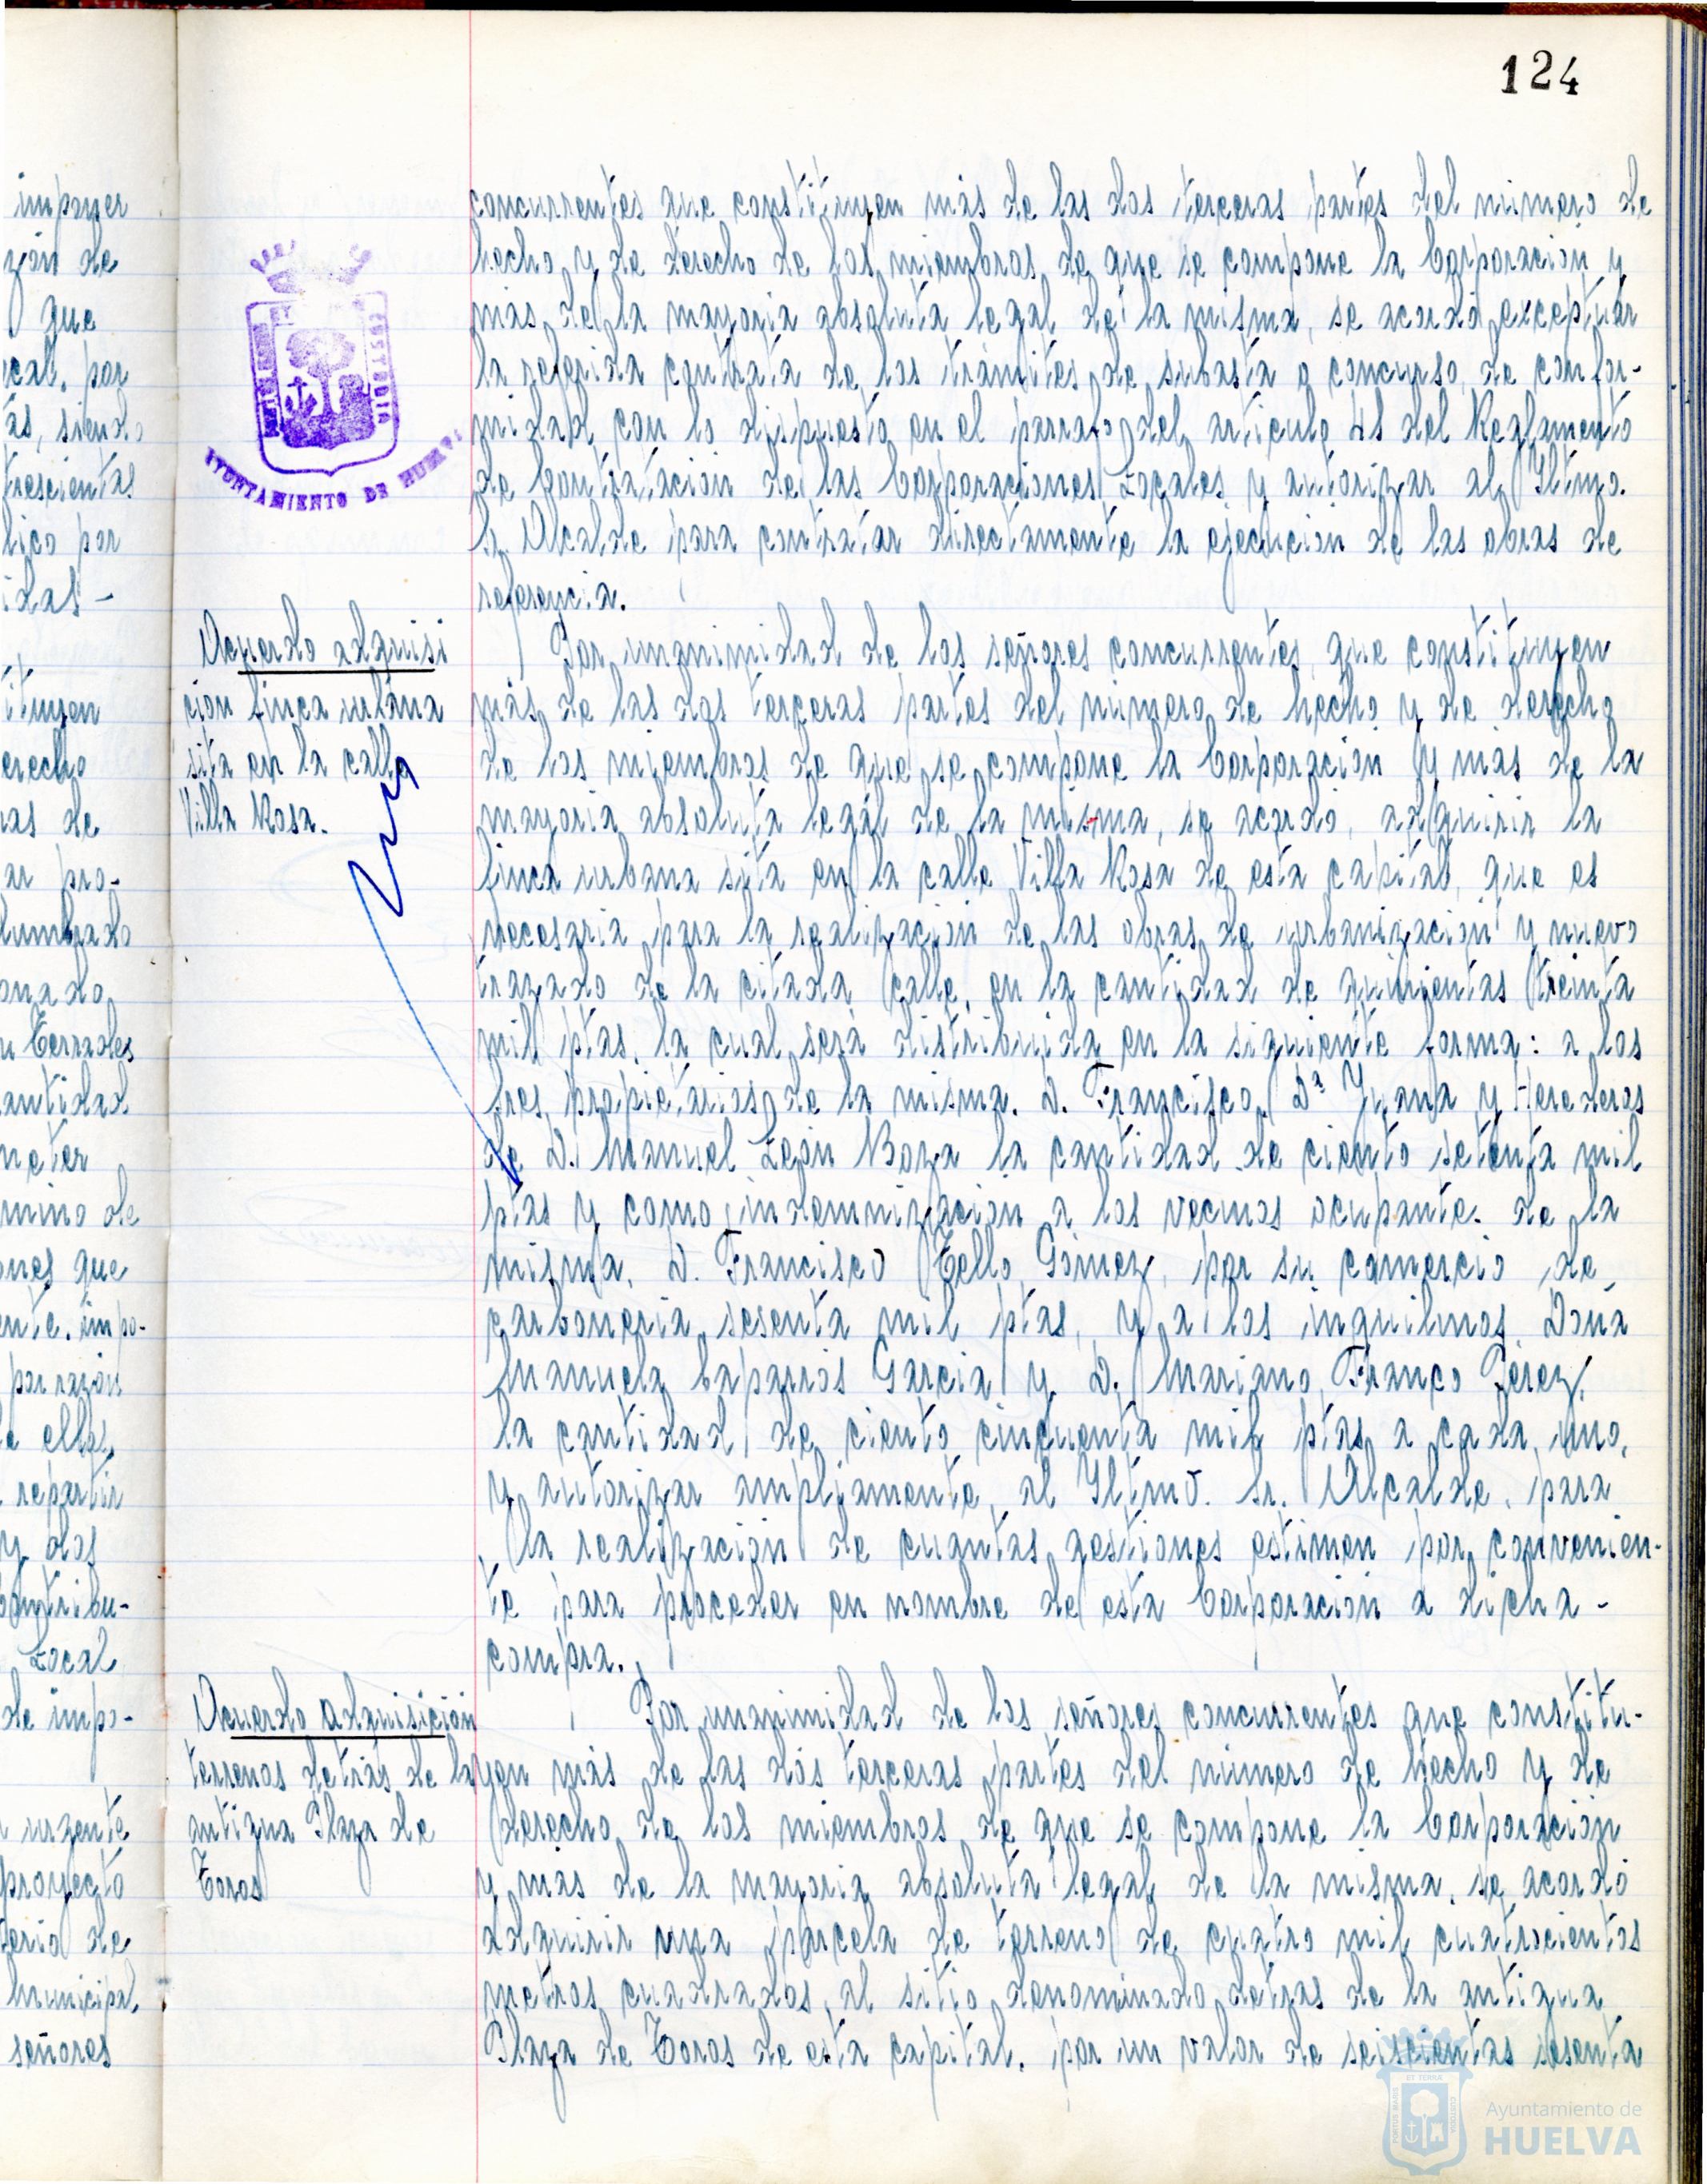 124
imponer
zón de
que
ical, por
as, siendo
trescientas
lico por
idas-
ituyen
erecho
ras de
ar pro-
lumbrado
onado
n Terrades
antidad
meter
mino de
ones que
ente. impo-
por razón
e ella,
repartir
y dos
Contribu-
Local
de impo-
urgente
proyecto
erio de
municipal,
señores
AYUNTAMIENTO DE HUELVA
concurrentes que constituyen más de las dos terceras partes del número de
hecho y de derecho de los miembros de que se compone la Corporación y
más de la mayoría absoluta legal de la misma, se acordó exceptuar
la referida contrata de los trámites de subasta o concurso, de confor-
midad con lo dispuesto en el parrafo del articulo 41 del Reglamento
de Contratación de las Corporaciones Locales y autorizar al Iltmo.
Sr. Alcalde para contratar directamente la ejecución de las obras de
referencia.
Acuerdo adquisi
ción finca urbana
sita en la calle
Villa Rosa.
Por unanimidad de los señores concurrentes, que constituyen
más de las dos terceras partes del número de hecho y de derecho
de los miembros de que se compone la Corporación y más de la
mayoría absoluta legal de la misma, se acordó, adquirir la
finca urbana sita en la calle Villa Rosa de esta capital, que es
necesaria para la realización de las obras de urbanización y nuevo
trazado de la citada calle, en la cantidad de quinientas treinta
mil ptas. la cual será distribuida en la siguiente forma: a los
tres propietarios de la misma. D. Francisco, Dª Juana y Herederos
de D. Manuel León Boza la cantidad de ciento setenta mil
ptas y como indemnización a los vecinos ocupante. de la
misma, D. Francisco Tello Gómez, por su comercio de
carboneria sesenta mil ptas, y a los inquilinos Doña
Manuela Caparrós García y D. Mariano Franco Pérez,
la cantidad de ciento cincuenta mil ptas a cada uno,
y autorizar ampliamente, al Iltmo. Sr. Alcalde, para
la realización de cuantas gestiones estimen por convenien-
te para proceder en nombre de esta Corporación a dicha -
compra.
Acuerdo adquisición
terrenos detrás de la
antigua Plaza de
Toros
Por unanimidad de los señores concurrentes que constitu-
yen más de las dos terceras partes del número de hecho y de
derecho de los miembros de que se compone la Corporación
y más de la mayoría absoluta legal de la misma, se acordó
adquirir una parcela de terreno de cuatro mil cuatrocientos
metros cuadrados, al sitio denominado detras de la antigua
Plaza de Toros de esta capital, por un valor de seiscientas sesenta
Ayuntamiento de
HUELVA